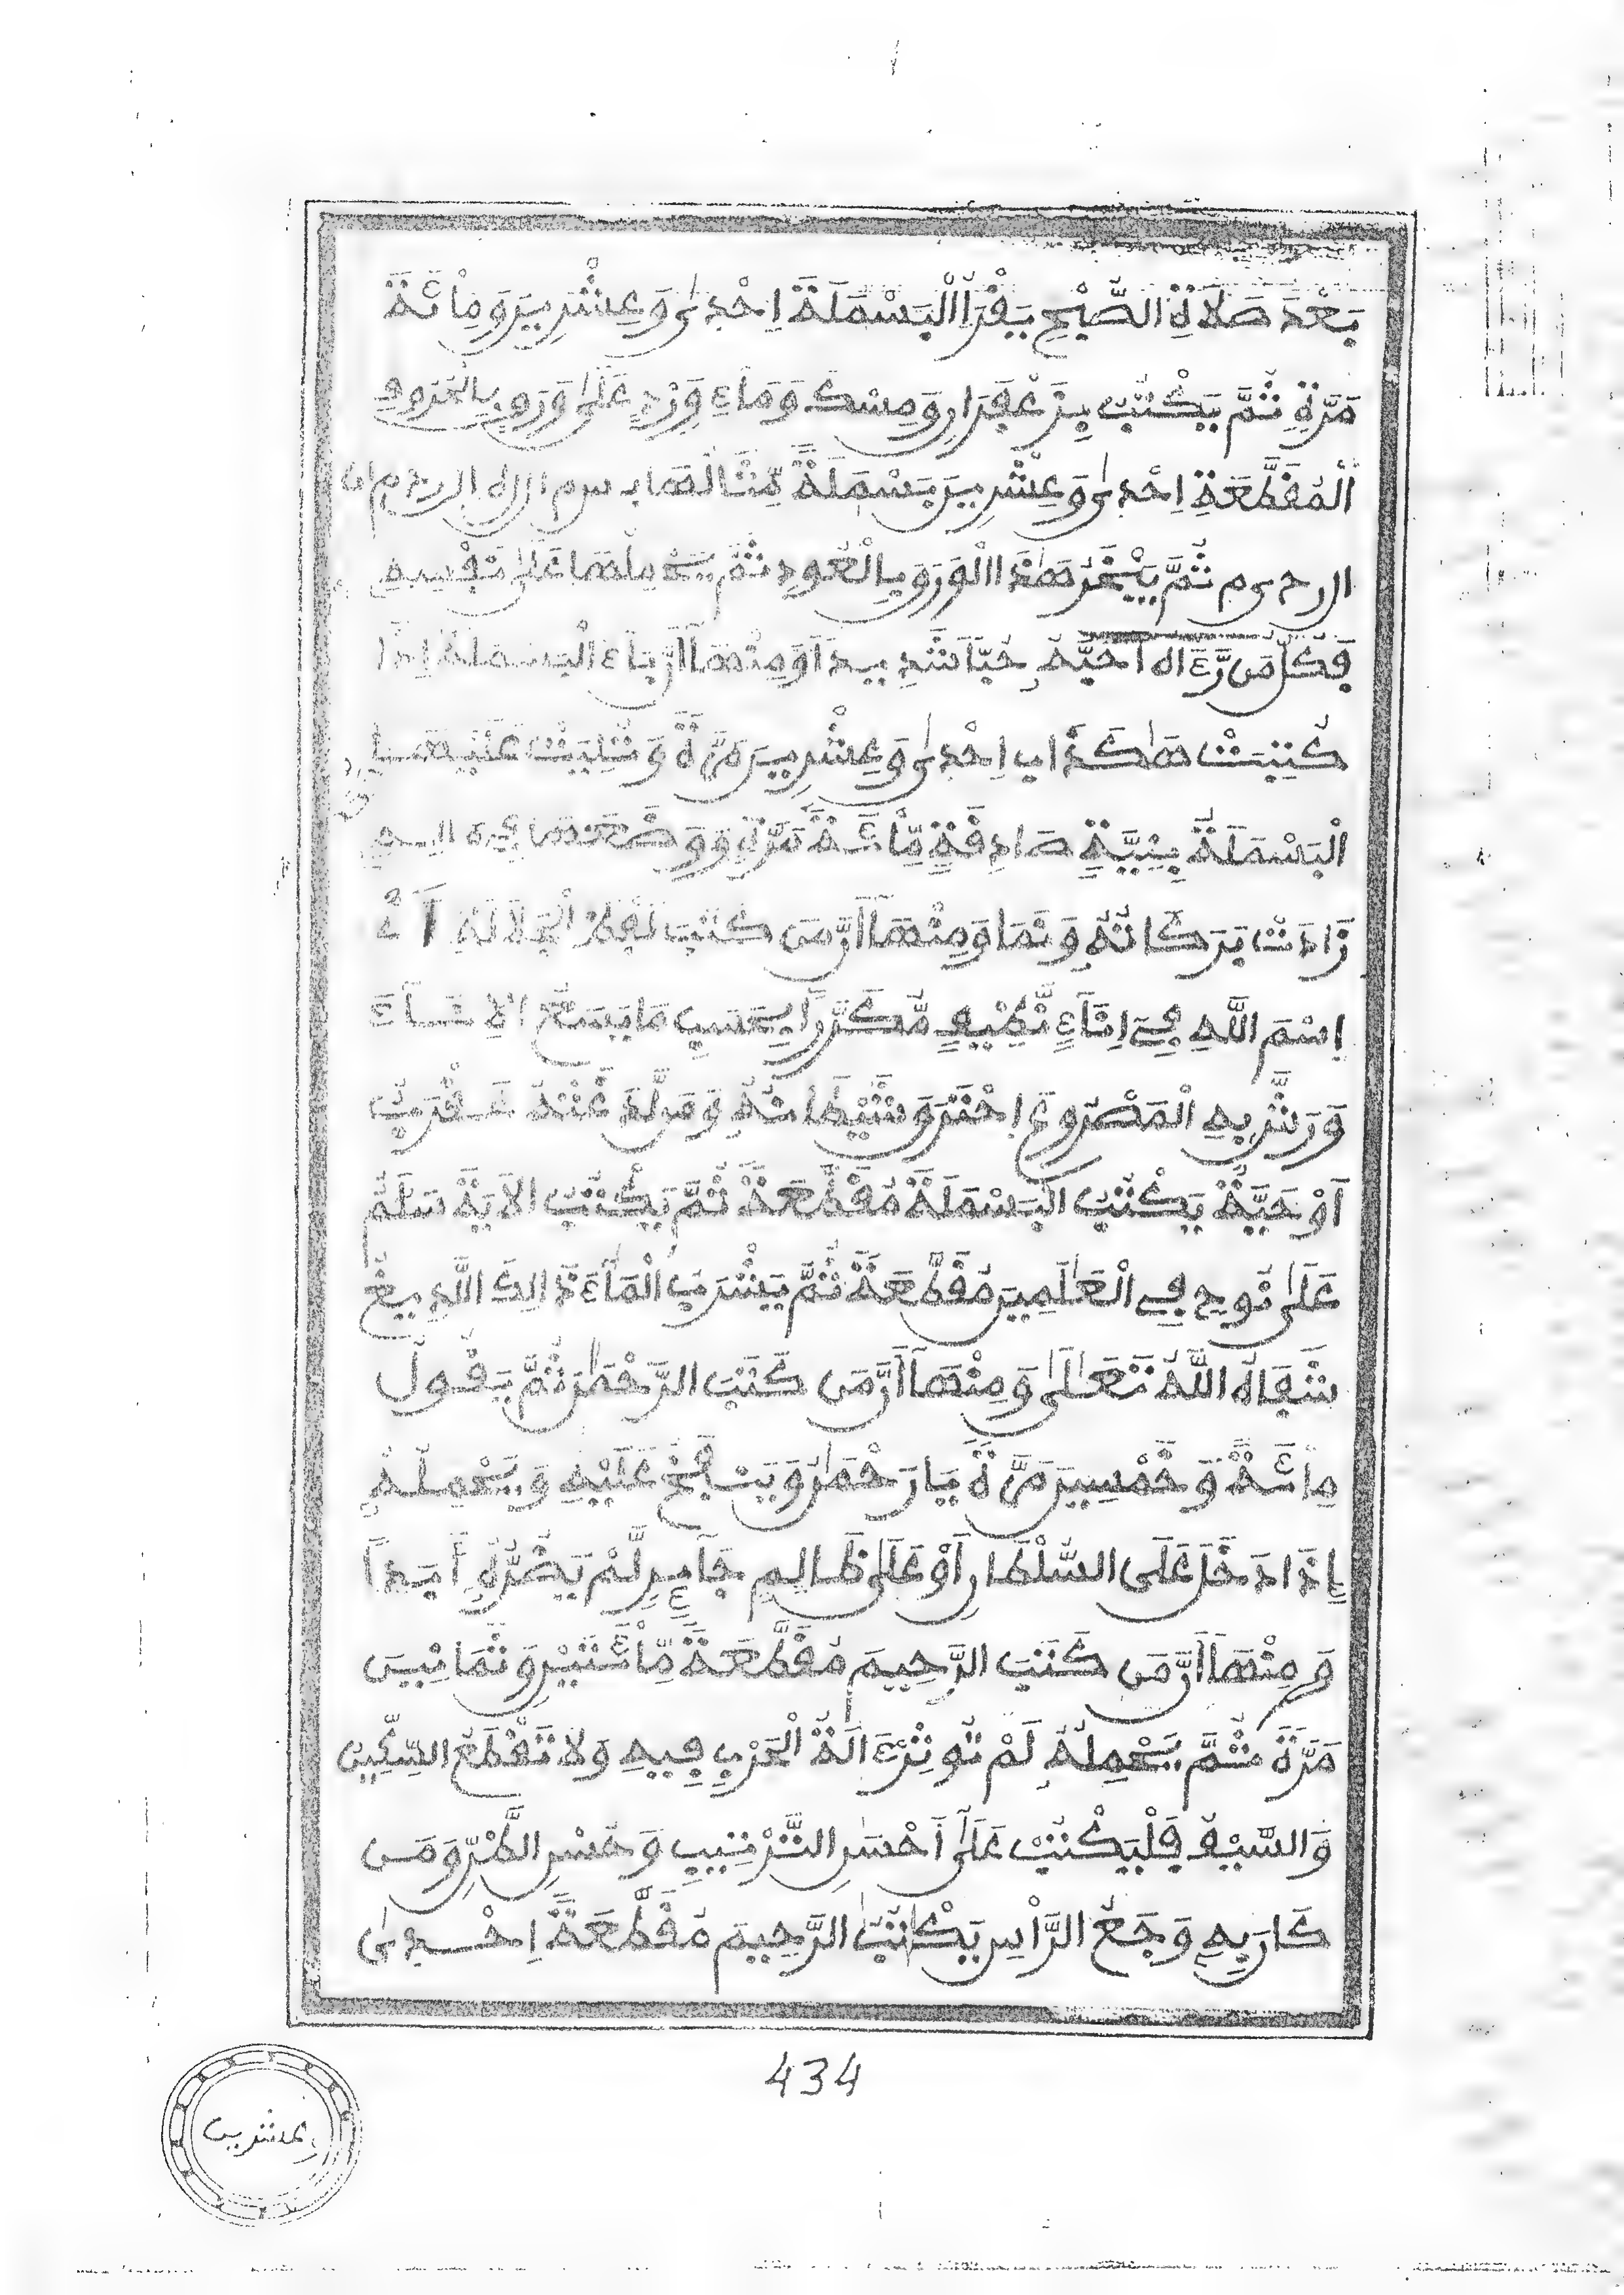 بَعْدَ صَلَاةِ الصُّبْحِ يَقْرَأُ الْبَسْمَلَةَ اِحْدٰى وَعِشْرِينَ وَمِائَةَ
مَرَّةٍ ثُمَّ يَكْتُبُ بِزَعْفَرَانٍ وَمِسْكٍ وَمَاءِ وَرْدٍ عَلَى وَرَقٍ بِالْحُرُوفِ
الْمُقَطَّعَةِ اِحْدٰى وَعِشْرِينَ بَسْمَلَةً مِّثَالُهَا ب س م ا ل ل ه ا ل ر ح م ا ن
ا ل ر ح ى م ثُمَّ يُبَخِّرُ هٰذَا الْوَرَقَ بِالْعُودِ ثُمَّ يَحْمِلُهَا عَلَى نَفْسِهِ
فَكُلُّ مَن رَّءَاهُ أَحَبَّهُ حُبًّا شَدِيدًا وَمِنْهَا أَنَّ بَاءَ الْبَسْمَلَةِ إِذَا
كُتِبَتْ هٰكَذَا ب اِحْدٰى وَعِشْرِينَ مَرَّةً وَتُلِيَتْ عَلَيْهَا
الْبَسْمَلَةُ بِنِيَّةٍ صَادِقَةٍ مِّائَةَ مَرَّةٍ وَوَضَعَهَا فِى
زَادَتْ بَرَكَاتُهُ وَنَمَا وَمِنْهَا أَنَّ مَن كَتَبَ لَفْظَ الْجَلَالَةِ أَىْ
اِسْمَ اللَّهِ فِي اِنَاءٍ نَّظِيفٍ مُّكَرَّرًا بِحَسَبِ مَا يَسَعُ الْاِنَاءَ
وَرَشَّ بِهِ الْمَصْرُوعَ اِحْتَرَقَ شَيْطَانُهُ وَمَن لَّدَغَتْهُ عَقْرَبٌ
اَوْ حَيَّةٌ يَكْتُبُ الْبَسْمَلَةَ مُقَطَّعَةً ثُمَّ يَكْتُبُ الْاٰيَةَ سَلَٰمٌ
عَلَى نُوحٍ فِي الْعَٰلَمِينَ مُقَطَّعَةً ثُمَّ يَشْرَبُ الْمَاءَ ذَالِكَ اللَّدِيغُ
شَفَاهُ اللَّهُ تَعَٰلَى وَمِنْهَا أَنَّ مَن كَتَبَ الرَّحْمَٰنَ ثُمَّ يَقُولُ
مِائَةً وَخَمْسِينَ مَرَّةً يَا رَحْمَٰنُ وَيَنْفُخُ عَلَيْهِ وَيَحْمِلُهُ
إِذَا دَخَلَ عَلَى السُّلْطَانِ أَوْ عَلَى ظَالِمٍ جَائِرٍ لَّمْ يَضُرَّهُ أَبَدًا
وَمِنْهَا أَنَّ مَن كَتَبَ الرَّحِيمَ مُقَطَّعَةً مِّائَتَيْنِ وَثَمَانِينَ
مَرَّةً ثُمَّ يَحْمِلُهُ لَمْ تُوثِرْ ءَالَةُ الْحَرْبِ فِيهِ وَلَا تَقْطَعُ السِّكِّينُ
وَالسَّيْفُ فَلْيَكْتُبْ عَلَى أَحْسَنِ التَّرْتِيبِ وَحُسْنِ الظَّنِّ وَمَن
كَانَ بِهِ وَجَعُ الرَّأْسِ يَكْتُبُ الرَّحِيمَ مُقَطَّعَةً اِحْدٰى
434